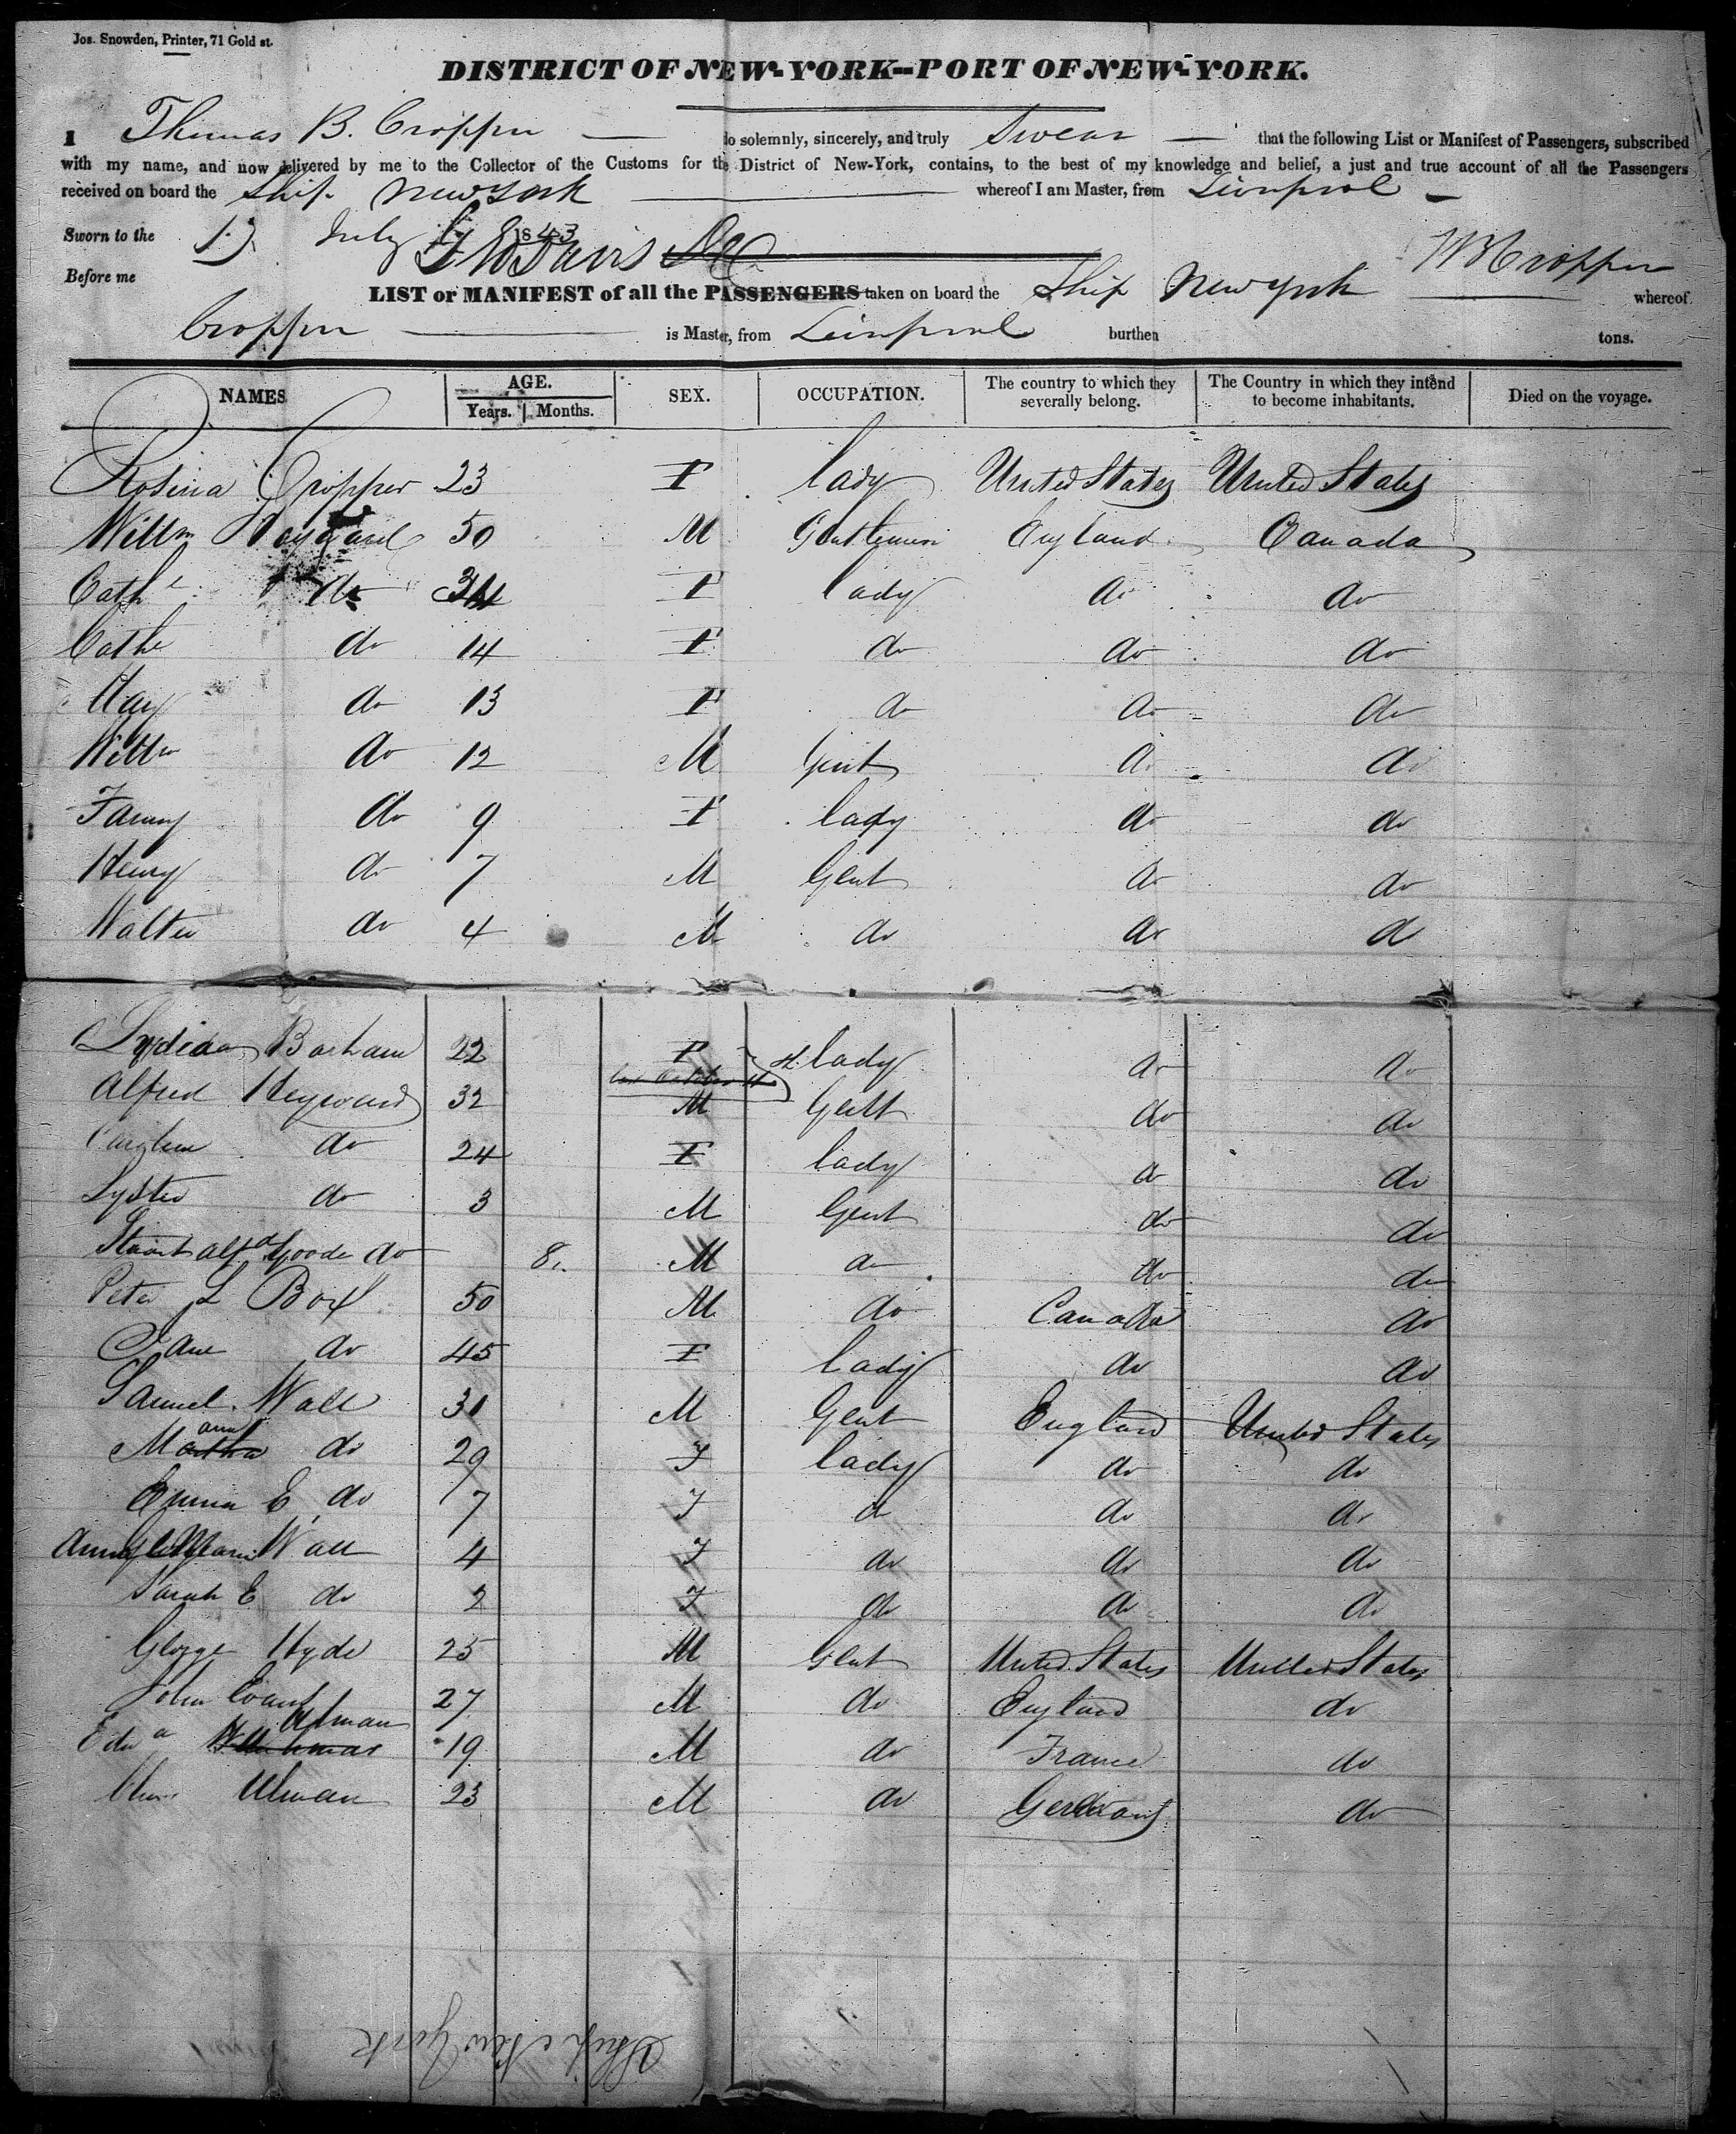 Jos. Snowden, Printer, 71 Gold st.
DISTRICT OF NEW-YORK--PORT OF NEW-YORK.
I Thomas B. Cropper do solemnly, sincerely, and truly Swear that the following List or Manifest of Passengers, subscribed
with my name, and now delivered by me to the Collector of the Customs for the District of New-York, contains, to the best of my knowledge and belief, a just and true account of all the Passengers
received on board the Ship New York whereof I am Master, from Liverpool
Sworn to the 17 July 1843
Before me
Cropper
LIST or MANIFEST of all the PASSENGERS taken on board the Ship New York whereof
Cropper is Master, from Liverpool burthen tons.
NAMES AGE. Years. Months. SEX. OCCUPATION. The country to which they severally belong. The Country in which they intend to become inhabitants. Died on the voyage.
Rosina Cropper 23 F lady United States United States
Willm 50 M Gentleman England Canada
Cathe do 34 F lady do do
Cathe do 14 F do do do
Mary do 13 F do do do
Willm do 12 M Gent do do
Fanny do 9 F lady do do
Henry do 7 M Gent do do
Walter do 4 M do do do
Lydia Barham 22 F lady do do
Alfred Heyward 32 M Gent do do
Caroline do 24 F lady do do
Lyster do 3 M Gent do do
Stuart Alfd Goode do 8 M do do do
Peter L Box 50 M do Canada do
Jane do 45 F lady do do
Samuel Wall 30 M Gent England United States
Martha ann do 29 F lady do do
Emma E do 7 F do do do
Wall 4 F do do do
Sarah E do 2 F do do do
George Hyde 25 M Gent United States United States
John Evans 27 M do England do
Edwd Ulman 19 M do France do
Ulman 23 M do Germany do
Ship New York